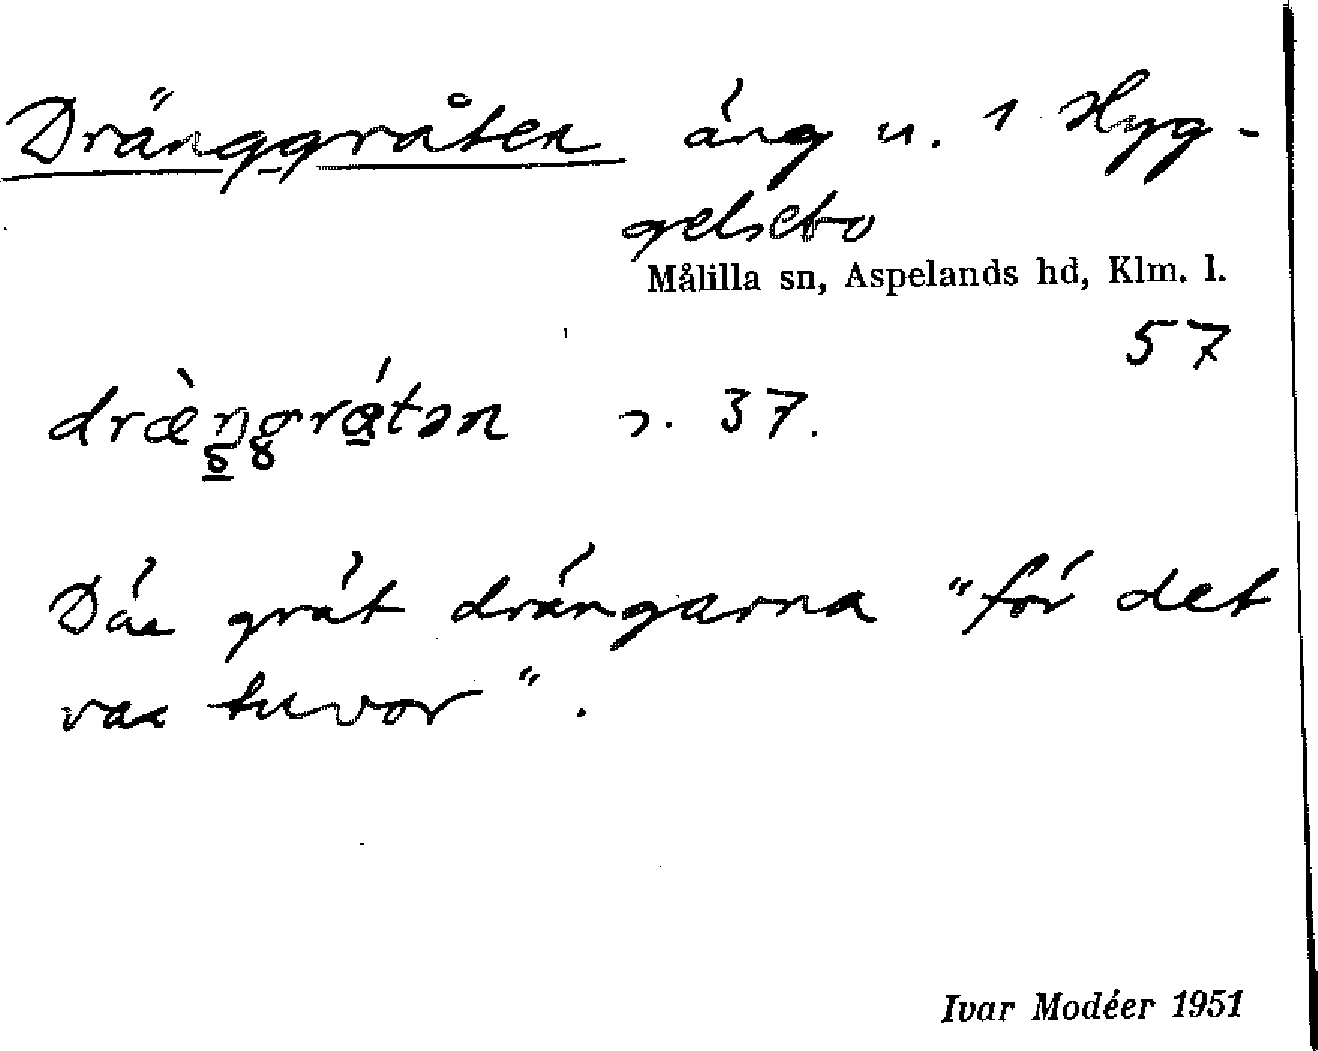 Dränggråten äng u. 1 Hyg-
gelsebo
Målilla sn, Aspelands hd, Klm. l.
57
dræ̀ŋgrátən s. 37.
Där grät drängarna "för det
var tuvor".
Ivar Modéer 1951